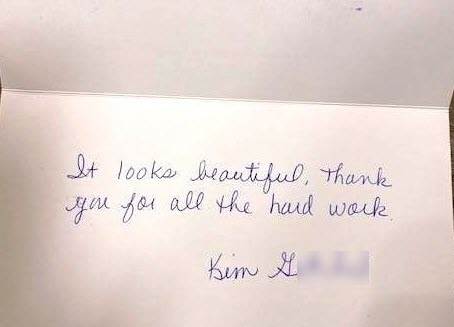 It looks beautiful, thank
you for all the hard work.
Kim G